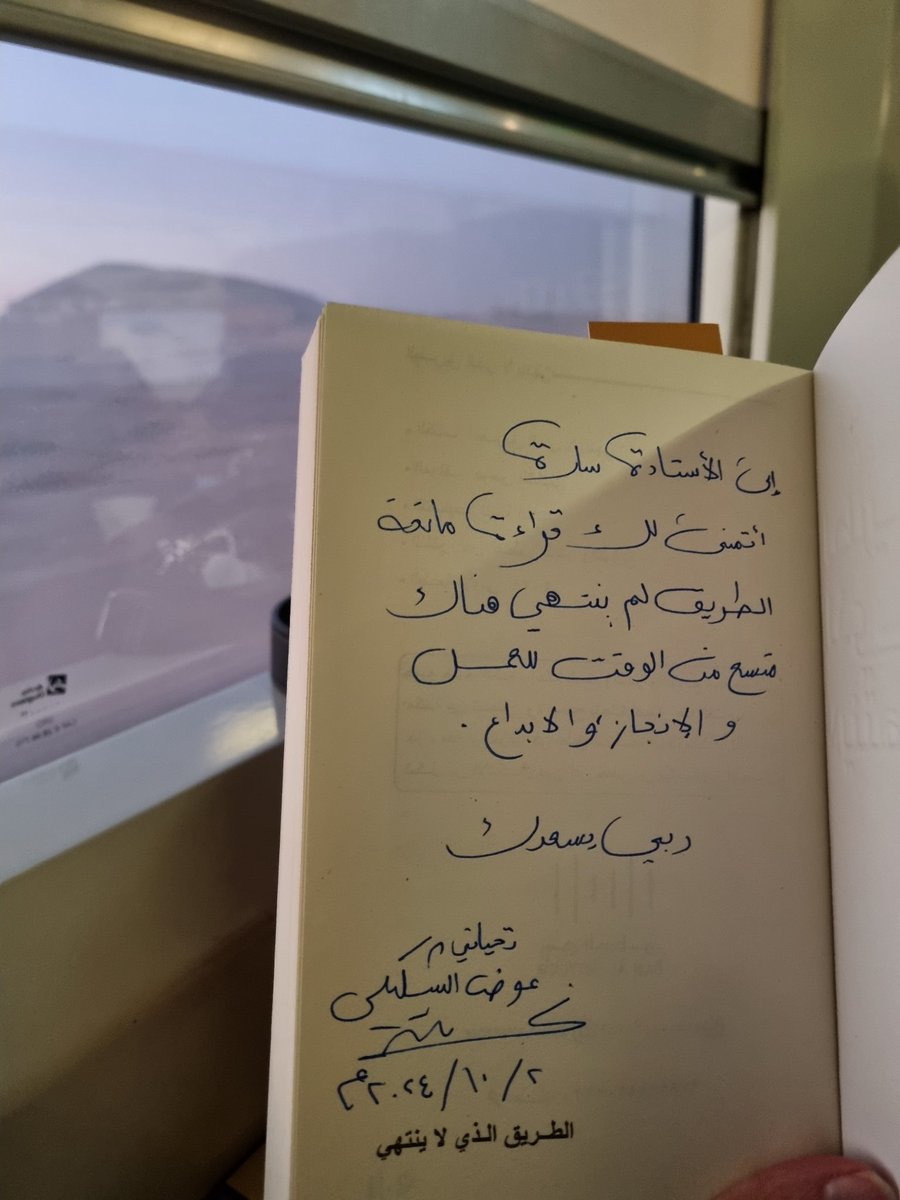 إلى الأستاذة سارة
أتمنى لك قراءة ماتعة
الطريق لم ينتهي هناك
متسع من الوقت للعمل
و الإنجاز والابداع .
ربي يسعدك
تحياتي
عوض
٢ / ١٠ / ٢٠٢٤م
الطريق الذي لا ينتهي